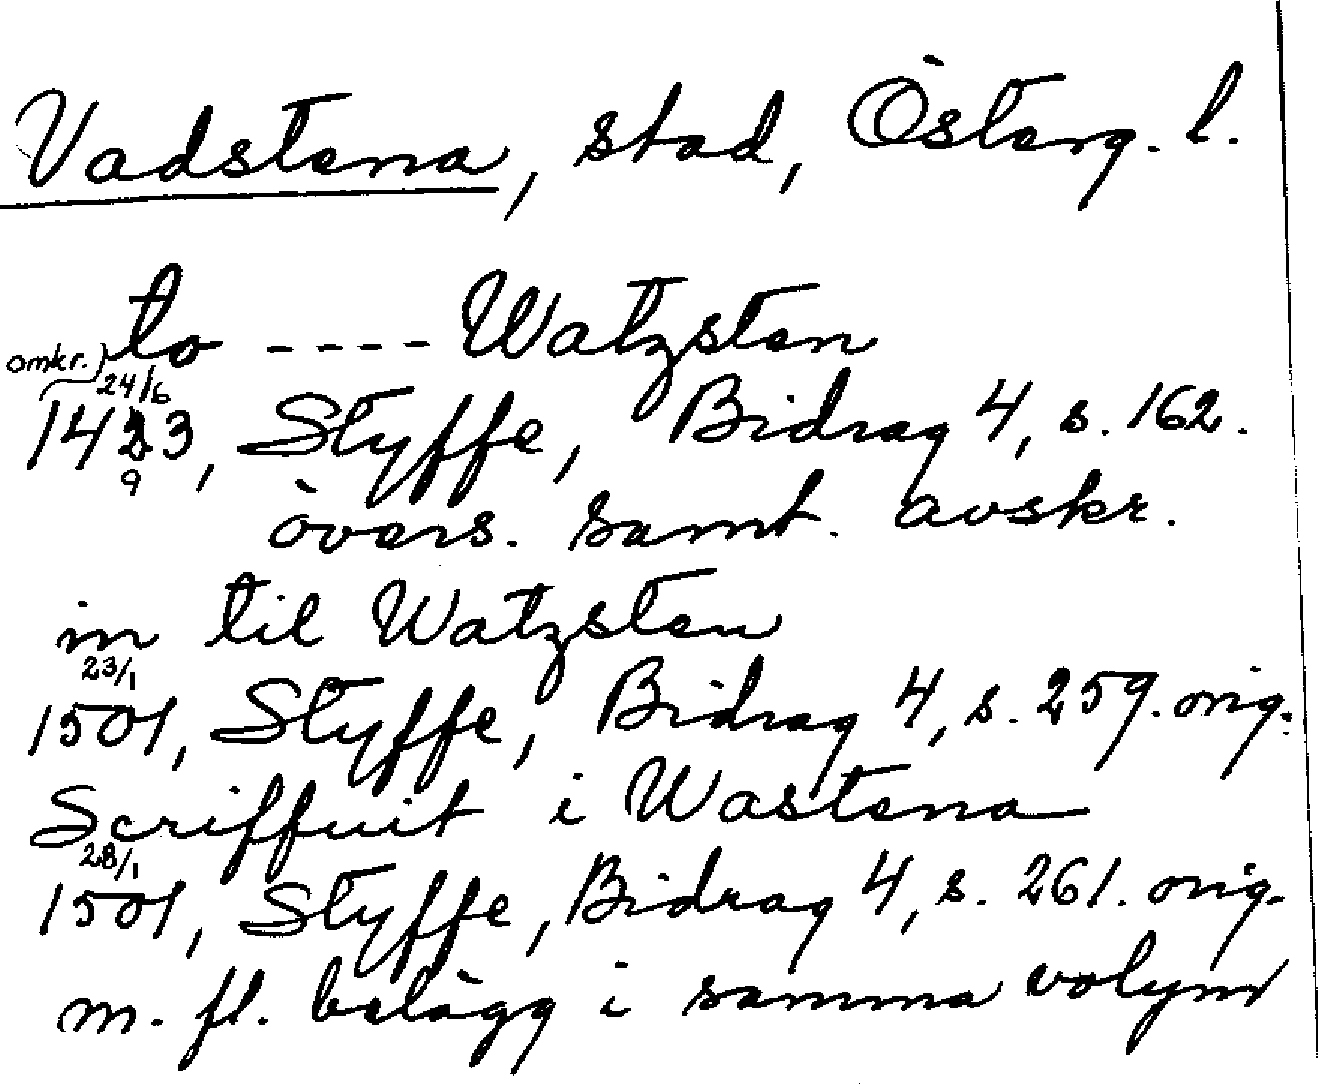 Vadstena, stad, Österg. l.
to ---- Watzsten
omkr. 24/6
1493, Styffe, Bidrag 4, s. 162.
övers. samt. avskr.
in til Watzsten
23/1
1501, Styffe, Bidrag 4, s. 259. orig.
Scriffuit i Wastena
28/1
1501, Styffe, Bidrag 4, s. 261. orig.
m. fl. belägg i samma volym